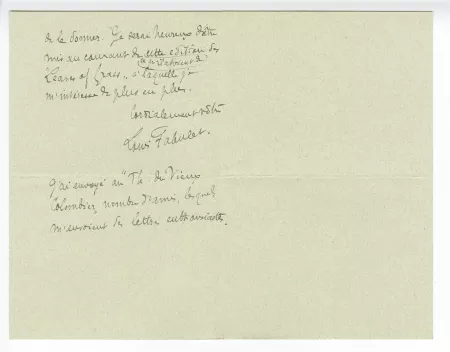 de la donner. Je serai heureux d'être
mis au courant de cette édition des
"Leaves of Grass", à laquelle je
m'intéresse de plus en plus.
Cordialement vôtre
Louis Fabulet
J'ai envoyé au "Th. du Vieux
Colombier" nombre d'amis, lesquels
m'envoient des lettres enthousiastes.